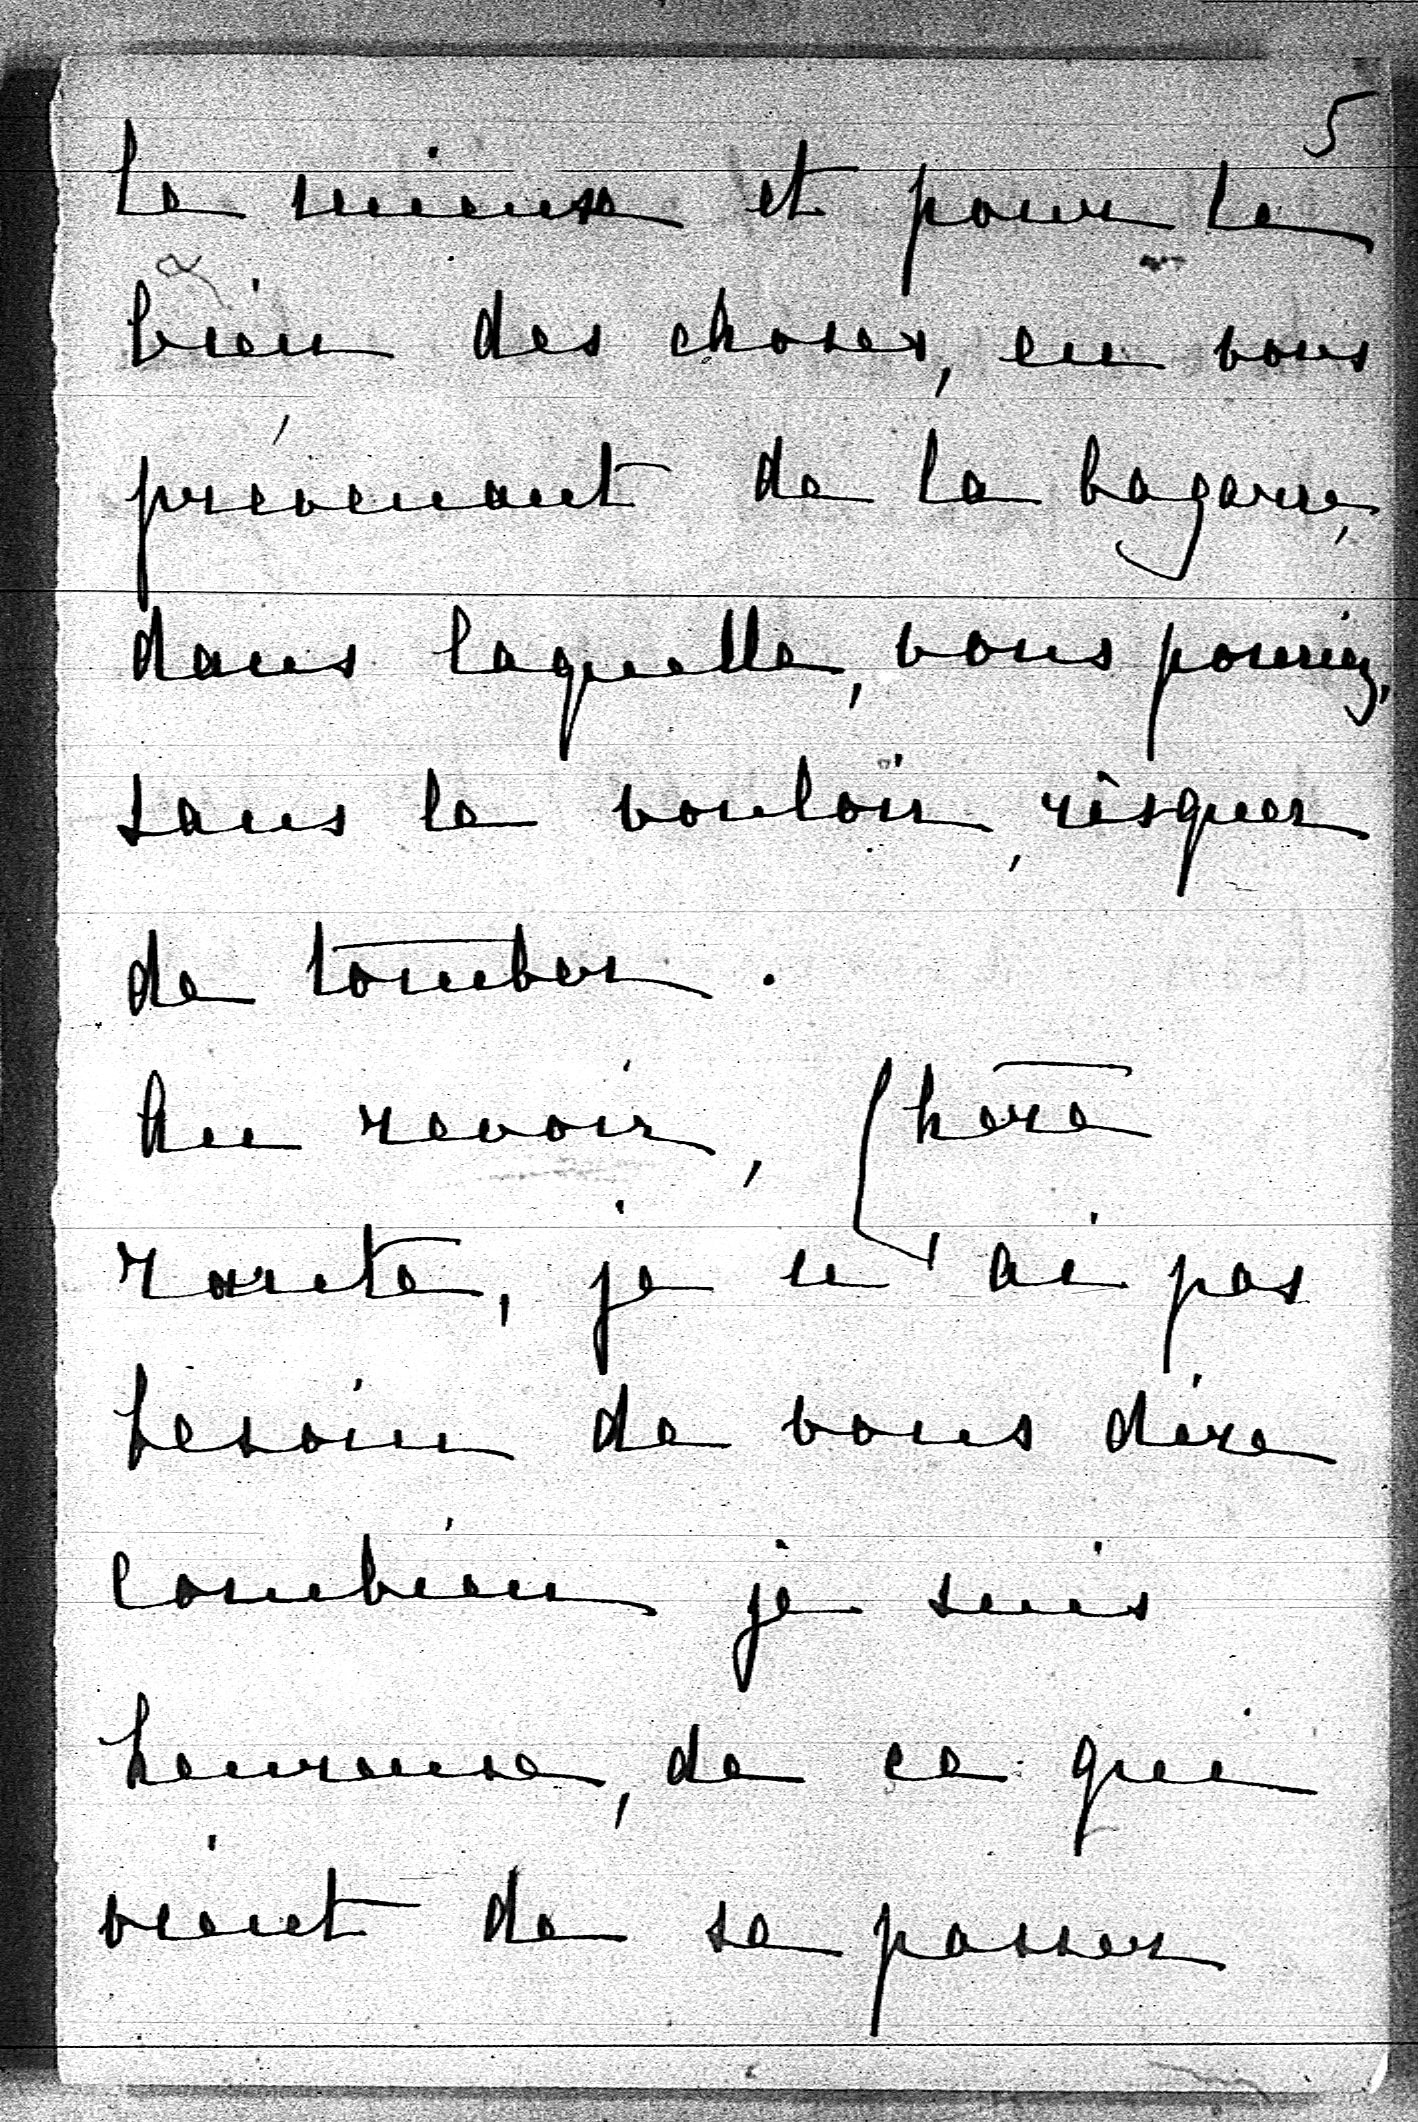 5
le mieux et pour le
bien des choses, en vous
prévenant de la bagarre,
dans laquelle, vous pourriez,
sans le vouloir, risquer
de tomber.
Au revoir, Chère
Tante, je n'ai pas
besoin de vous dire
combien je suis
heureuse, de ce qui
vient de se passer